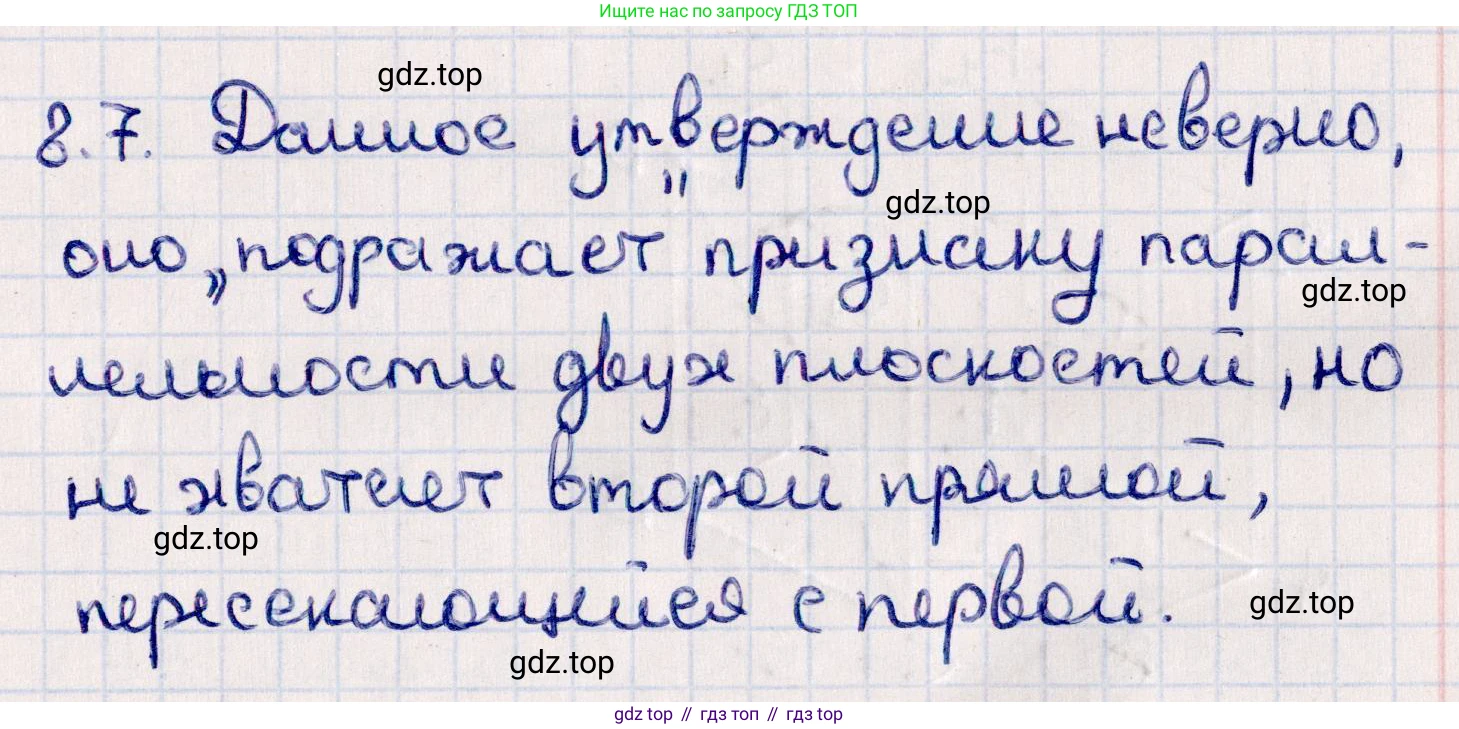 Ищите нас по запросу ГДЗ ТОП
gdz.top
8.7. Данное утверждение неверно,
gdz.top
оно „подражает" признаку парал-
gdz.top
лельности двух плоскостей, но
не хватает второй прямой,
gdz.top
пересекающийся с первой.
gdz.top
gdz.top
gdz top // гдз топ // гдз top